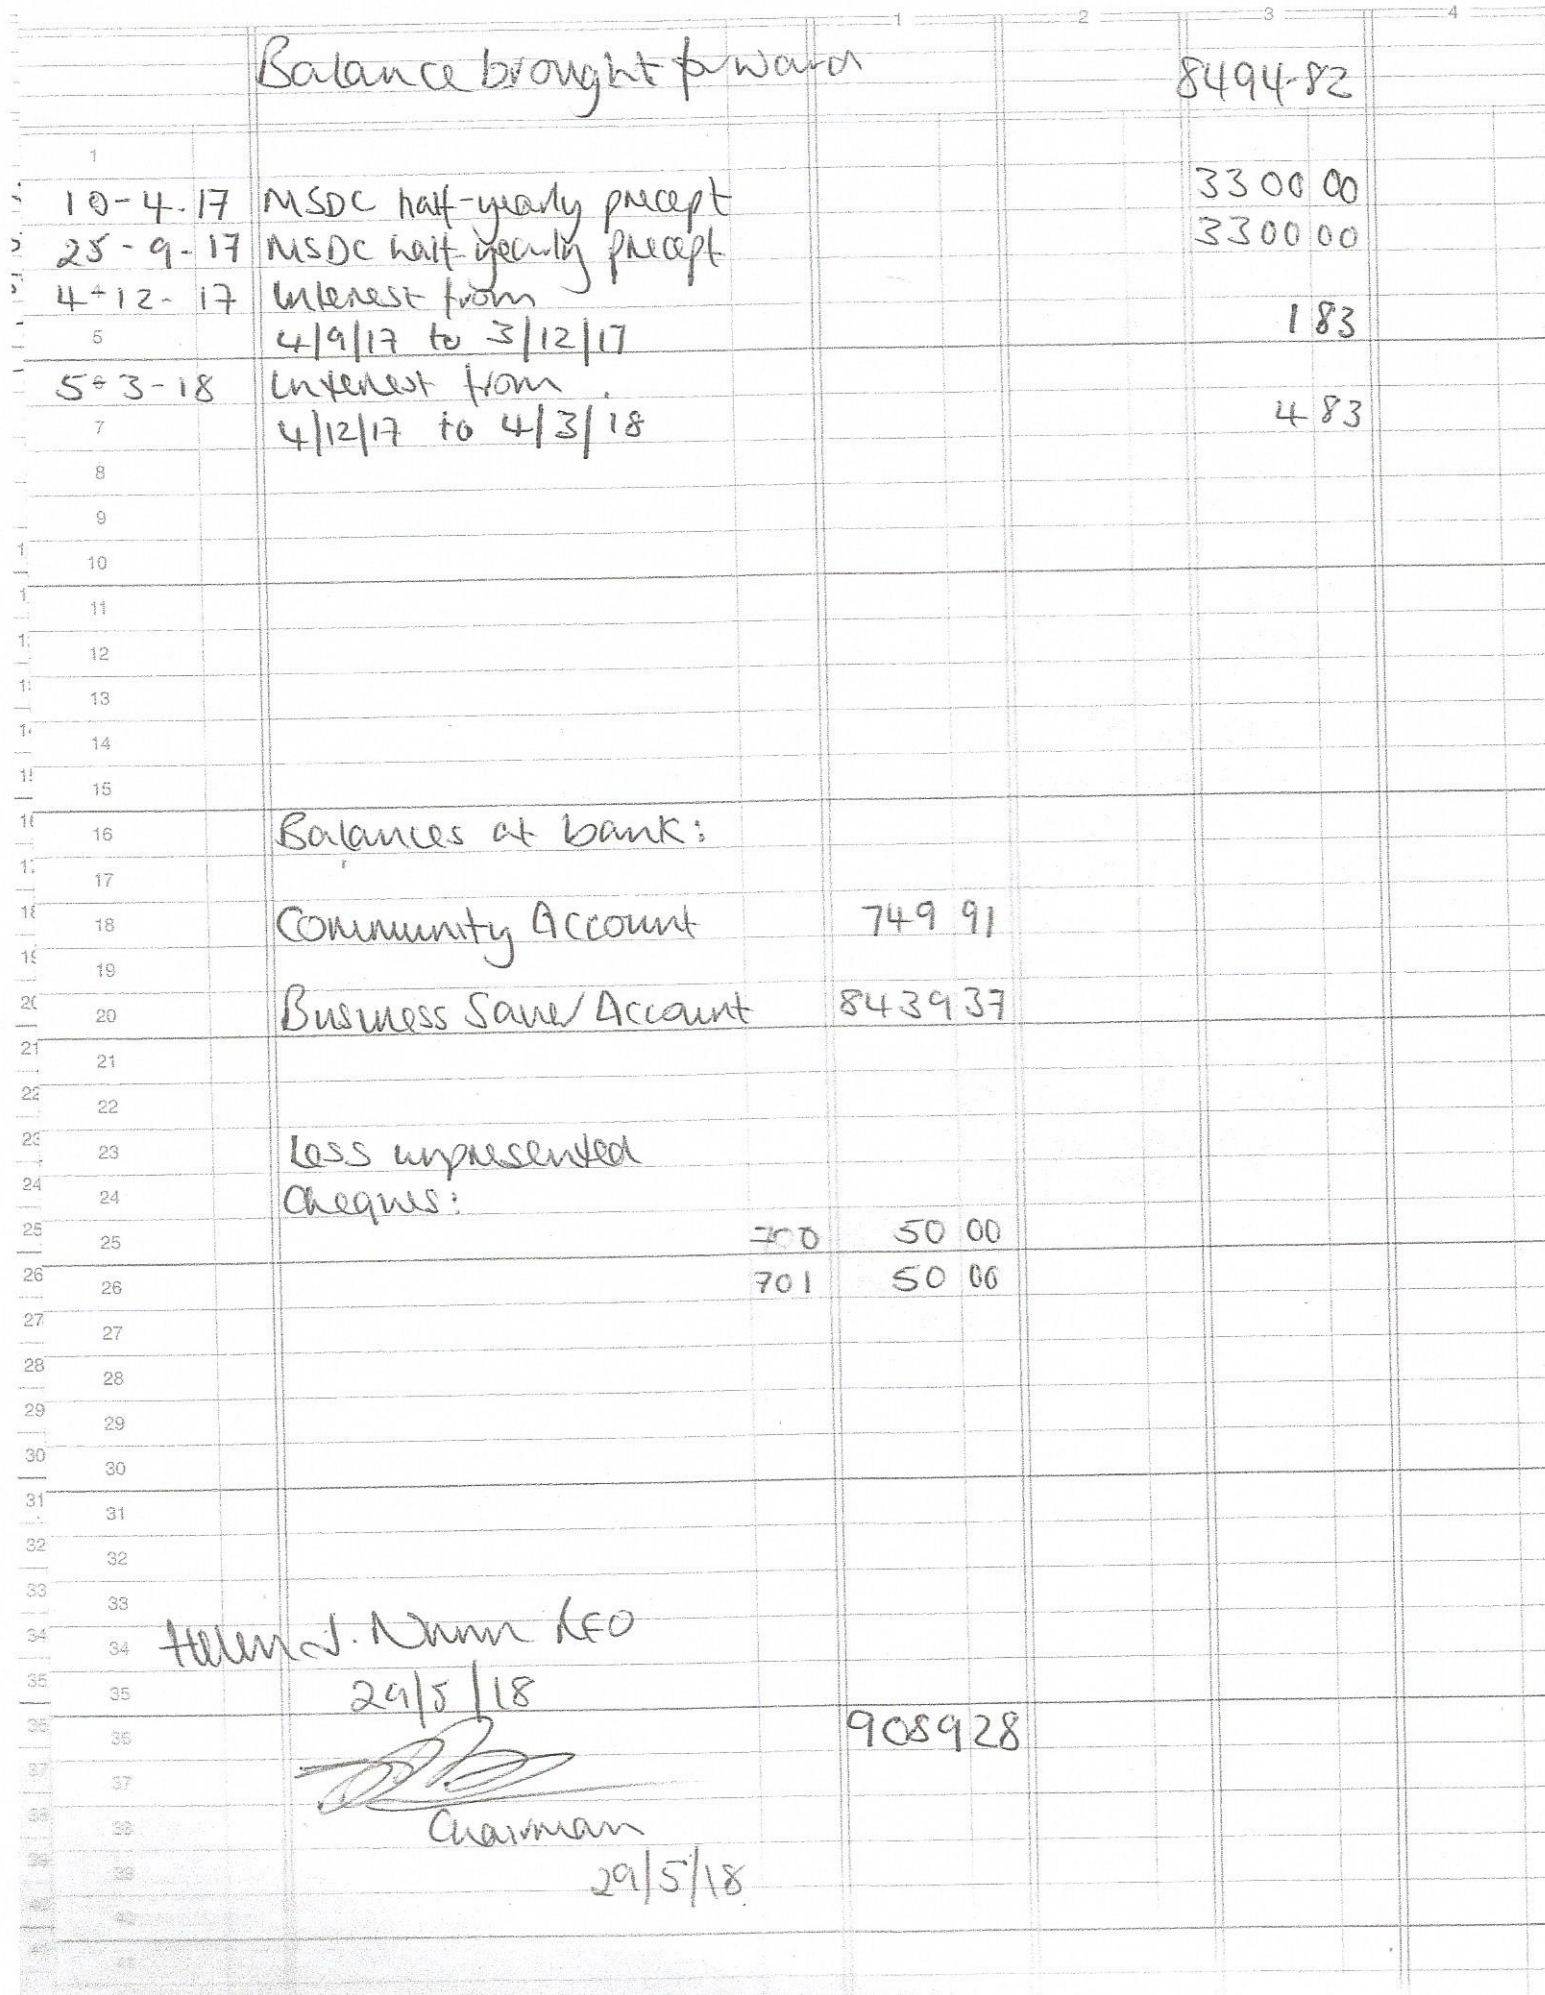 1 2 3 4
Balance brought forward 8494-82
1
10-4-17 MSDC half-yearly precept 3300 00
25-9-17 MSDC half-yearly precept 3300 00
4-12-17 Interest from
5 4/9/17 to 3/12/17 1 83
5-3-18 Interest from
7 4/12/17 to 4/3/18 4 83
8
9
10
11
12
13
14
15
16 Balances at bank:
17
18 Community Account 749 91
19
20 Business Saver Account 8439 37
21
22
23 Less unpresented
24 Cheques:
25 700 50 00
26 701 50 00
27
28
29
30
31
32
33
34 Helen J. Nunn RFO
35 29/5/18
36 9089 28
37
38 Chairman
39 29/5/18